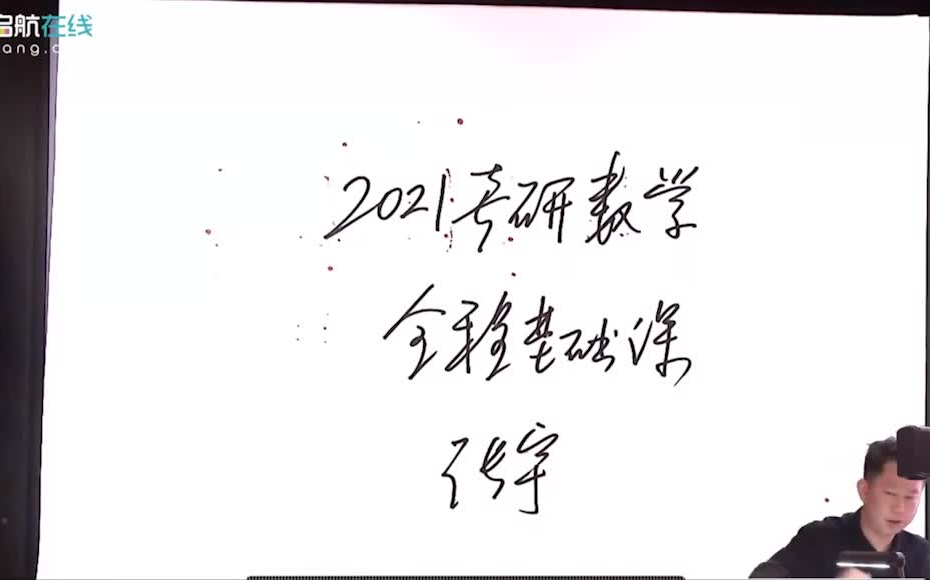 启航在线
2021考研数学
全程基础课
张宇